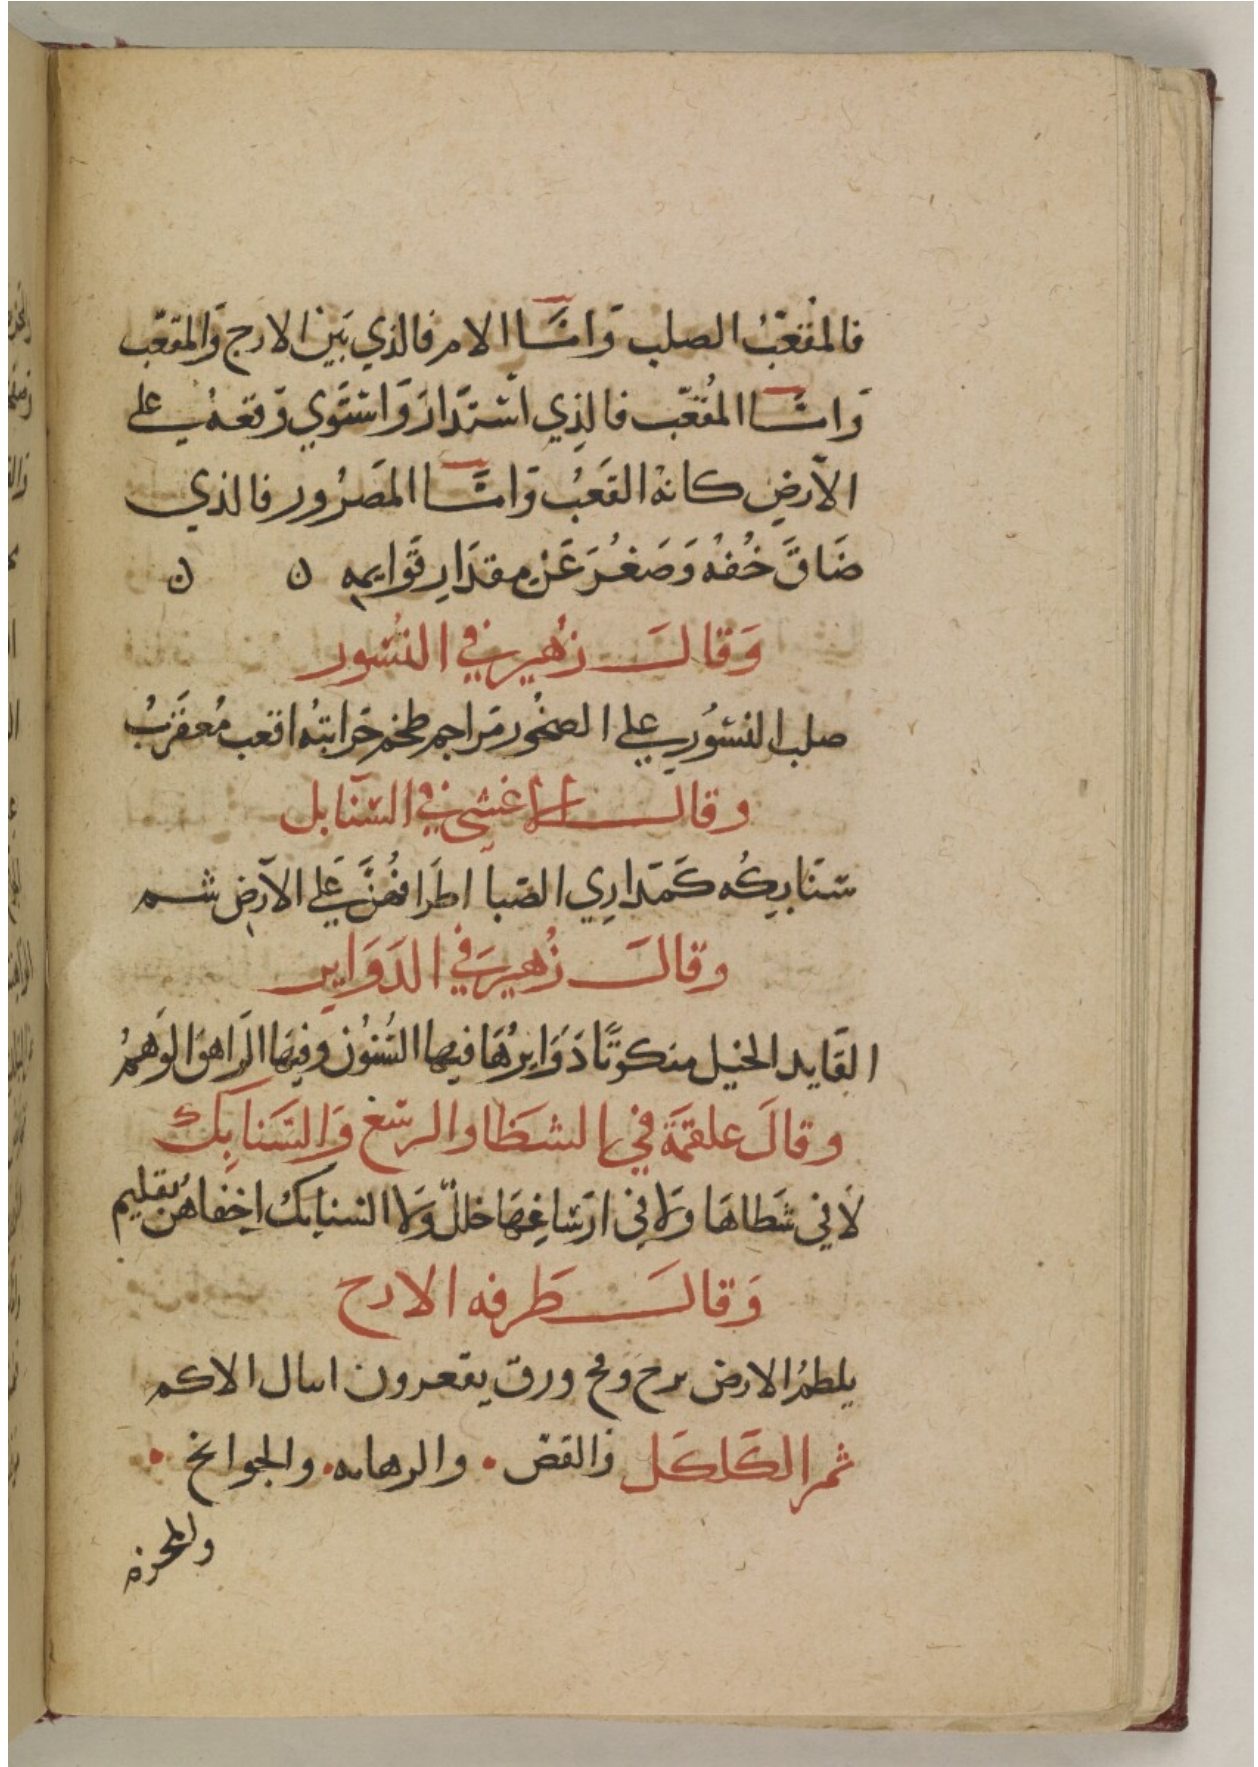 فالمقعّبُ الصلب وَامَّا الام فالذي بَين الارج وَالمقعّب
وَامَّا المُقعّب فالذِي اسْتدَارَ وَاسْتَوي وَقعهُ علي
الأرضِ كانه القَعبُ وَامَّا المَصرُور فالذي
ضَاقَ خُفهُ وَصَغُرَ عَن مِقدَارِ قَوايمِهِ ن ن
وَقالَ زهَير في النسُور
صلب النسُور علي الصخُور مَراجم طخم حَرابتهُ اقعب مُعقَربُ
وقال الاعشي في السَنابل
سَنَابِكُه كَمَدارِي الظبا اطرَافهُنَّ عَلي الأرضِ شم
وقالَ زُهير في الدوَايرِ
القَايد الخيل منكوبًا دَوَابرُهَا فيها الشنُون وَفيهَا الزاهق الزهمُ
وقالَ علقمَة في الشظَا والرسغ وَالسَنابِك
لَا في شظاهَا وَلا في ارسَاغِهَا خللٌ وَلا السنابك اخفاهنّ تقليم
وَقالَ طَرفه الارح
يلطمُ الارض برح وقح ورق يقعرون اىىال الاكم
ثم الكَلكَل وَالقص • والرهابه • والجوانح •